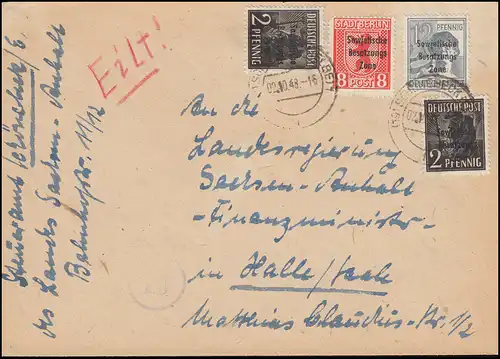 Eilt!
2
DEUTSCHE POST
PFENNIG
STADT BERLIN
Sowjetische
Besatzungs
Zone
8 POST 8
12 PFENNIG
Sowjetische
Besatzungs
Zone
DEUTSCHE POST
2 PFENNIG
02.10.48.-16
An die
Landesregierung
Sachsen-Anhalt
-Finanzminister-
in Halle/Saale
Matthias Claudius-Str. 1/2
Steueramt
des Landes Sachsen-Anhalt
Bahnhofstr. 11/12